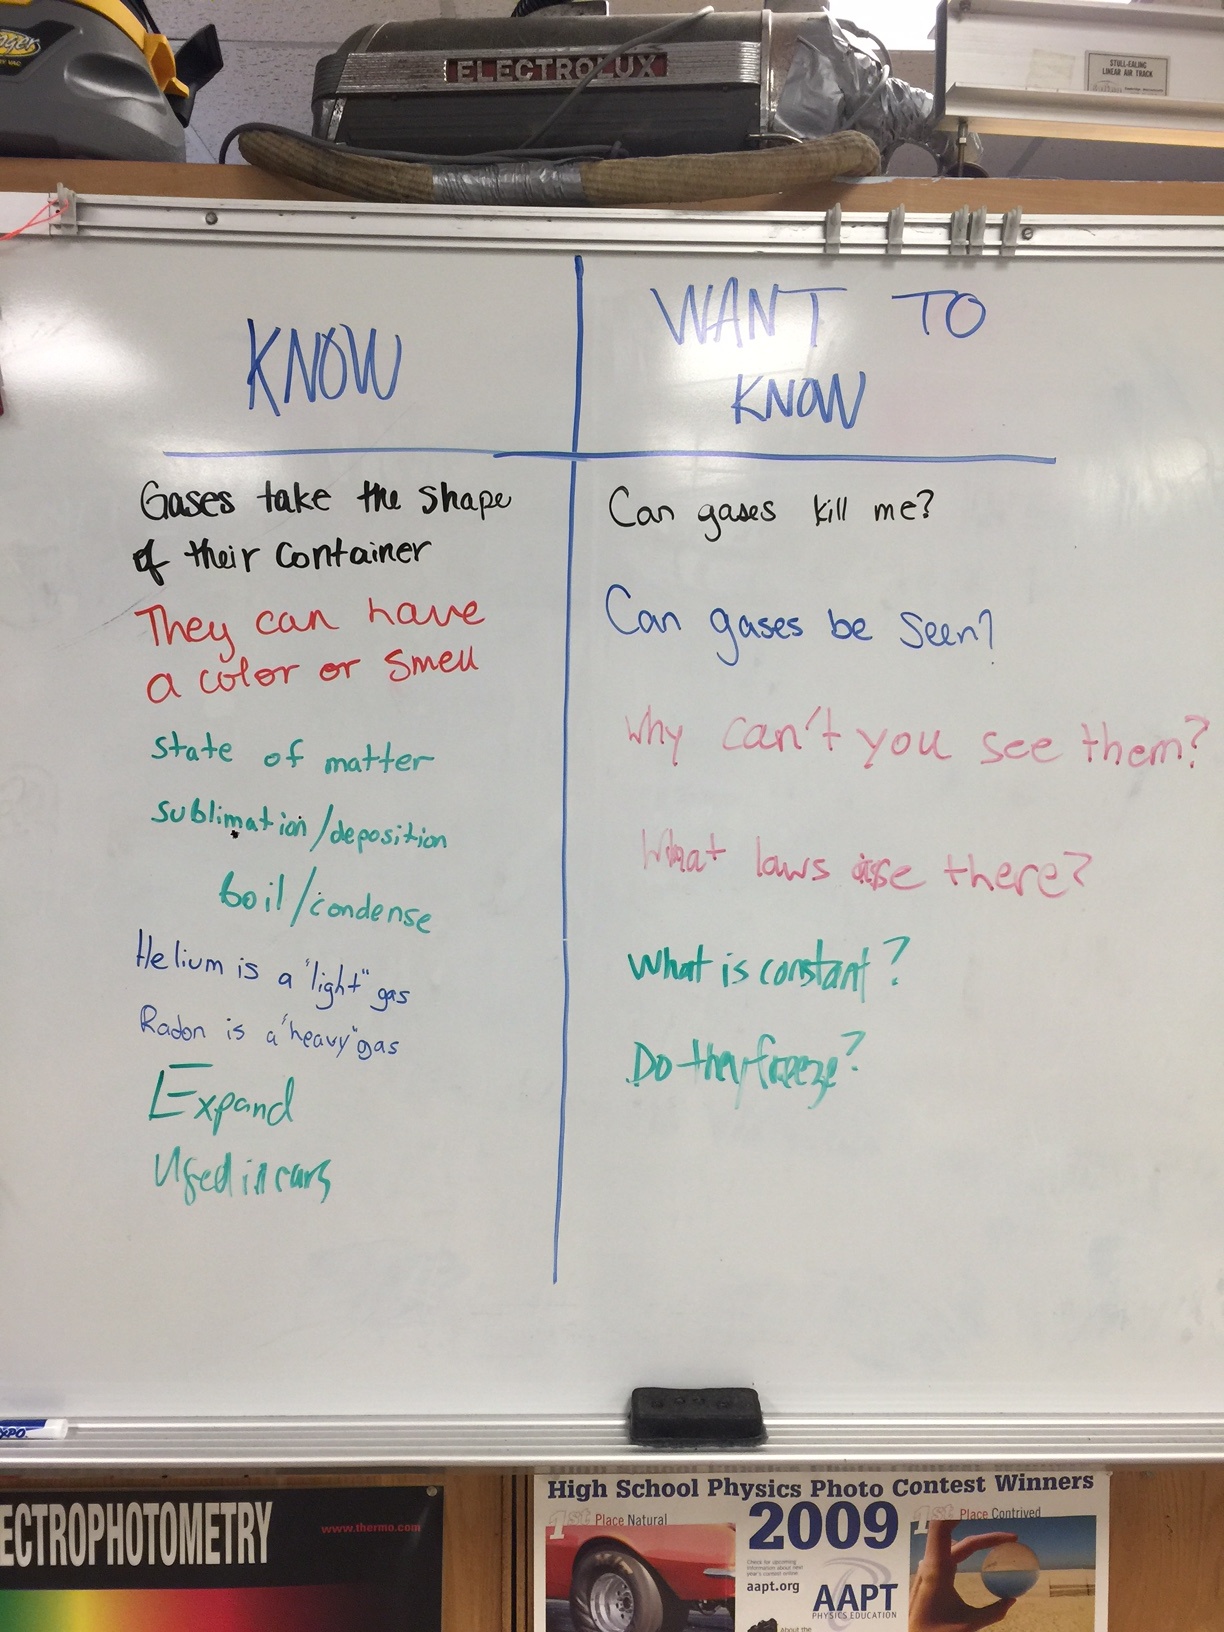 ELECTROLUX
STULL-EALING
LINEAR AIR TRACK
KNOW
WANT TO
KNOW
Gases take the shape
of their container
They can have
a color or smell
state of matter
sublimation/deposition
boil/condense
Helium is a "light" gas
Radon is a "heavy" gas
Expand
Used in cars
Can gases kill me?
Can gases be seen?
Why can't you see them?
What laws are there?
What is constant?
Do they freeze?
XPO
ECTROPHOTOMETRY
www.thermo.com
High School Physics Photo Contest Winners
2009
1st Place Natural
1st Place Contrived
Check for upcoming
information about next
year's contest online.
aapt.org
AAPT
PHYSICS EDUCATION
about the